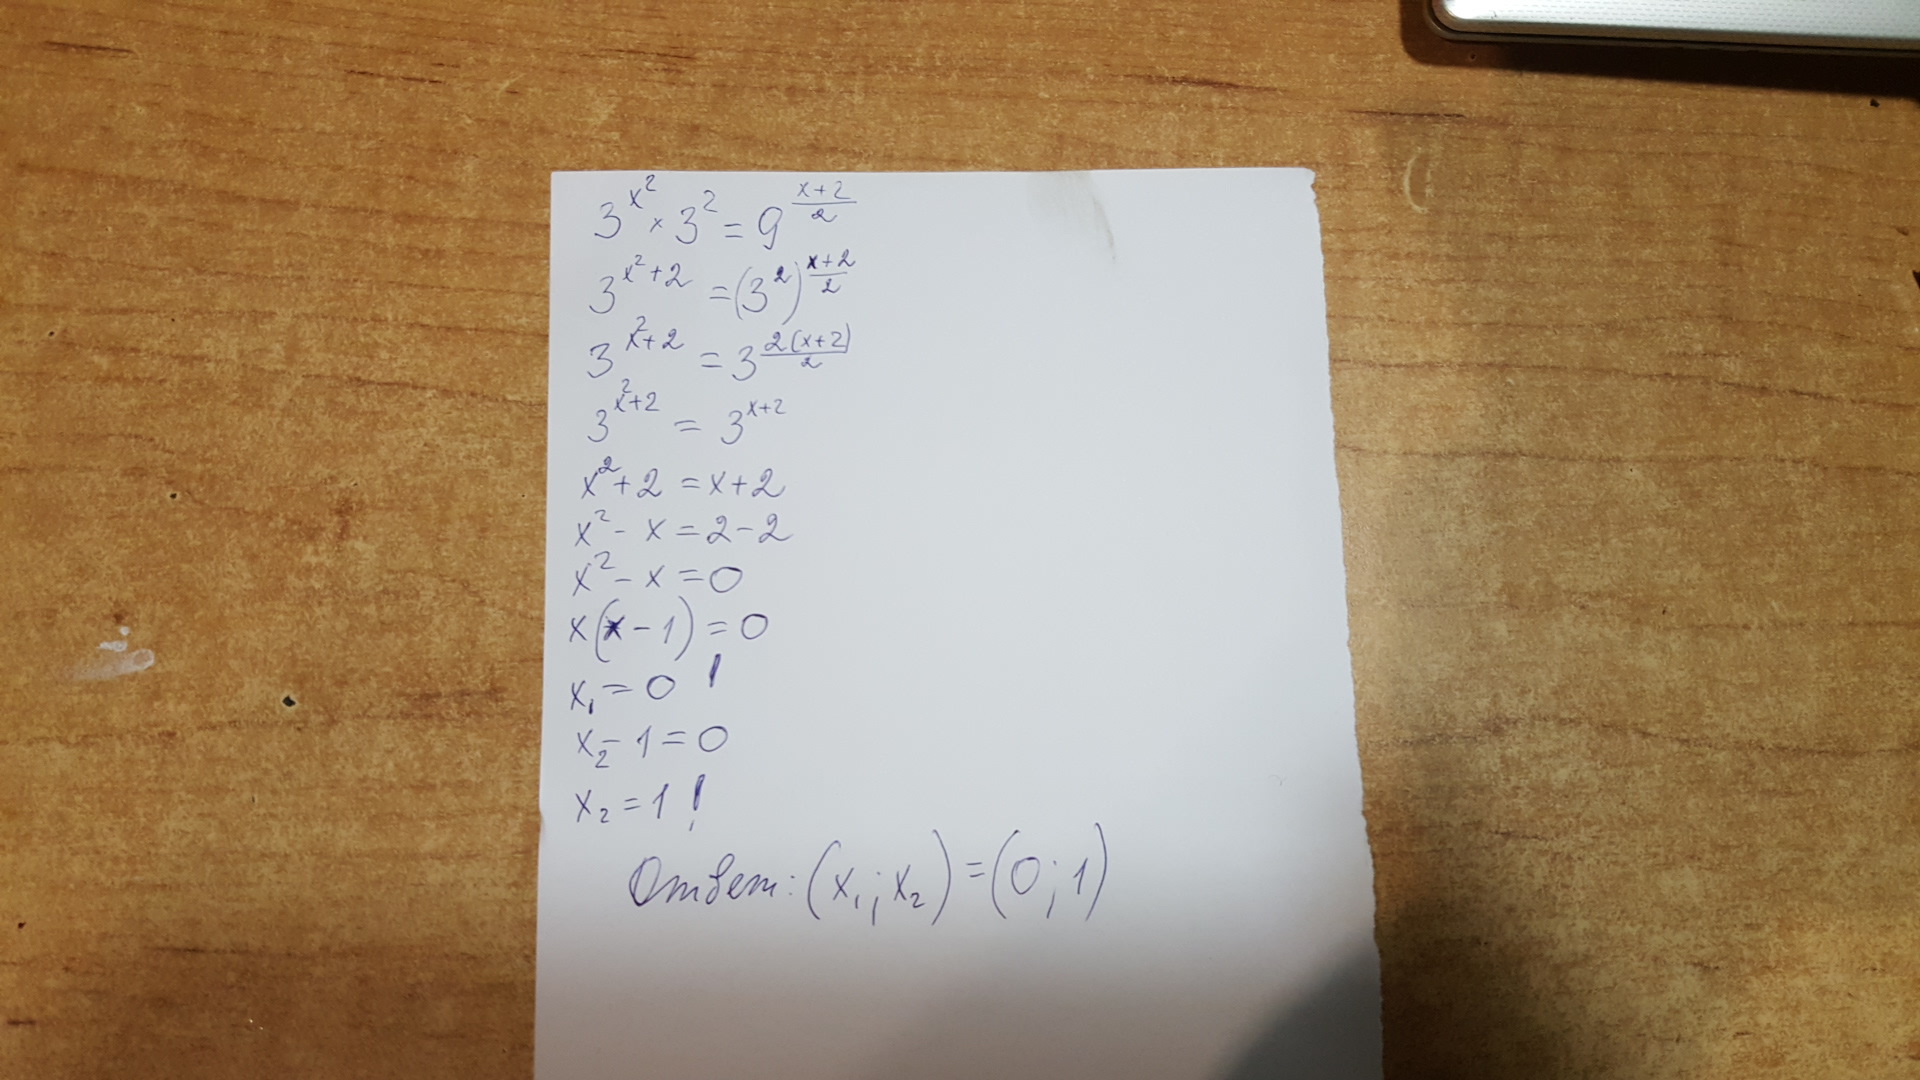 3^{x^2} × 3^2 = 9^{\frac{x+2}{2}}
3^{x^2+2} = (3^2)^{\frac{x+2}{2}}
3^{x^2+2} = 3^{\frac{2(x+2)}{2}}
3^{x^2+2} = 3^{x+2}
x^2+2 = x+2
x^2 - x = 2-2
x^2 - x = 0
x(x-1) = 0
x_1 = 0 !
x_2 - 1 = 0
x_2 = 1 !
Ответ: (x_1; x_2) = (0; 1)